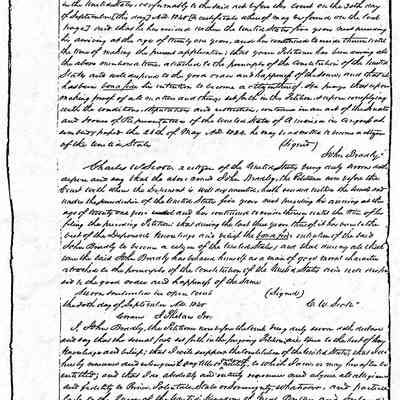 in the United States, conformably to the said act before this Court on the 30th day
of September (this day) A.D. 1845 (a certificate whereof may be found on the last
page) and that he has resided within the United States five years next preceding
his arriving at the age of twenty one years, and has continued to reside therein until
the time of making the present application; that your Petitioner has been during all
the above mentioned time, attached to the principles of the Constitution of the United
States and well disposed to the good order and happiness of the same; and that it
has been bona fide his intention to become a citizen thereof. He prays that upon
making proof of all matters and things set forth in this Petition, and upon complying
with the conditions, stipulations and
and Houses of Representatives of the United States of America in Congress
assembled passed the 26th of May A.D. 1824, he may be admitted to become a citizen
of the United States.
(Signed)
John Bradly
Charles W. Scott, a citizen of the United States being duly sworn doth
depose and say that the above said John Bradly, the Petitioner now before the
Court with whom the Deponent is well acquainted, hath resided within the limits and
under the jurisdiction of the United States five years next preceding his arriving at the
age of twenty one years and has continued to reside therein until the time of his
filing the preceding Petition; that during the last three years thereof it has been to the
best of the Deponent's Knowledge and belief the bona fide intention of the said
John Bradly to become a citizen of the United States; and that during all which
time the said John Bradly has behaved himself as a man of good moral character
attached to the principles of the Constitution of the United States and well dispos
ed to the good order and happiness of the same.
Sworn and subscribed in open Court (Signed)
the 30th day of September A.D. 1845 C. W. Scott
I, John Bradly, the Petitioner now before the Court being duly sworn doth declare
and say that the several facts set forth in the foregoing Petition, are true to the best of my
Knowledge and belief; that I will support the Constitution of the United States; that I do
hereby renounce and relinquish any title or nobility, to which I am or may hereafter be
entitled; and that I do absolutely and entirely renounce and abjure all allegiance
and fidelity to Prince, Potentate, State or Sovereignty, whatever, and particu
larly to the Queen of the United Kingdom of Great Britain and Ireland